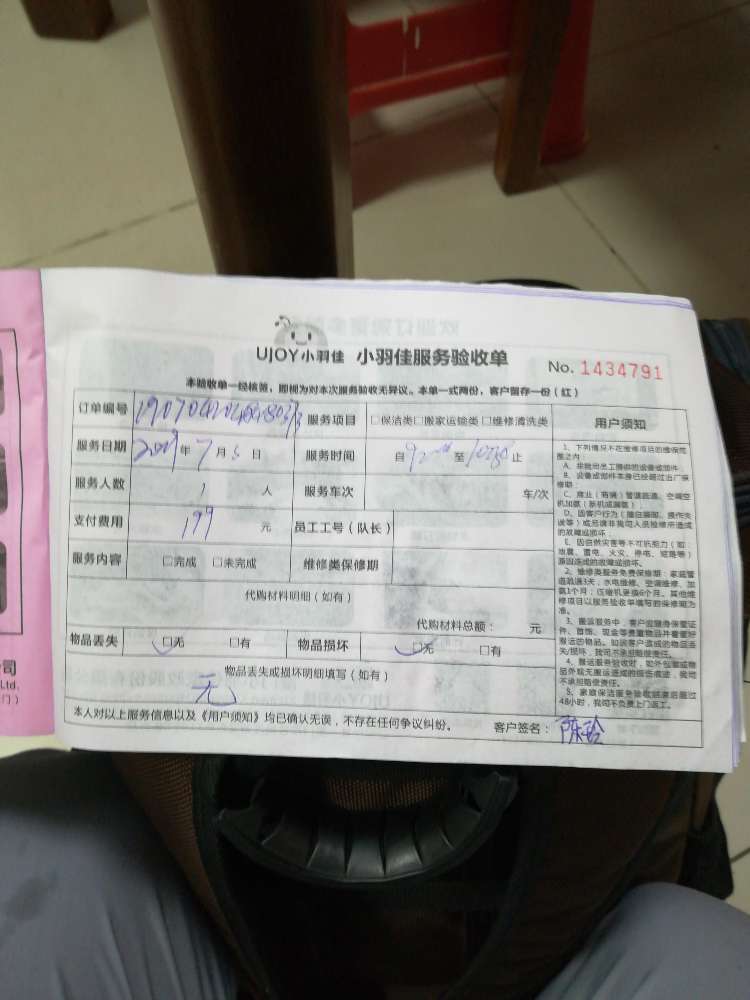 UJOY小羽佳 小羽佳服务验收单 No. 1434791
本验收单一经核签，即视为对本次服务验收无异议。本单一式两份，客户留存一份（红）
订单编号 服务项目 □保洁类□搬家运输类□维修清洗类 用户须知
服务日期 年 7 月 5 日 服务时间 自 至 止
服务人数 1 人 服务车次 车/次
支付费用 199 元 员工工号（队长）
服务内容 □完成 □未完成 维修类保修期
代购材料明细（如有）
代购材料总额： 元
物品丢失 □无 □有 物品损坏 □无 □有
物品丢失或损坏明细填写（如有）
无
本人对以上服务信息以及《用户须知》均已确认无误，不存在任何争议纠纷。 客户签名： 陈玲
1、下列情况不在维修项目的维保范围之内：
A、非我司员工操作的设备或部件
B、设备或部件本身已经超过出厂保修期；
C、商业（商铺）管道疏通、空调空机加氨（新机或漏氨）；
D、因客户行为（擅自拆卸、操作失误等）或另请非我司人员检修所造成的故障或损坏。
E、因自然灾害等不可抗能力（如：地震、雷电、火灾、停电、短路等）原因造成的故障或损坏。
2、维修类服务免费保修期：家庭管道疏通3天，水电维修、空调维修、加氨1个月；压缩机更换6个月。其他维修项目以服务验收单填写的保修期为准。
3、搬运服务中，客户应确保置证件、首饰、现金等贵重物品并看管好搬运的物品。如因客户造成的物品丢失/损坏，我司不承担赔偿责任。
4、搬运服务验收时，如外包装或物品外观无搬运造成的损伤痕迹，我司不承担赔偿责任。
5、家庭保洁服务验收结束后超过48小时，我司不负责上门返工。
司
Ltd.
门）